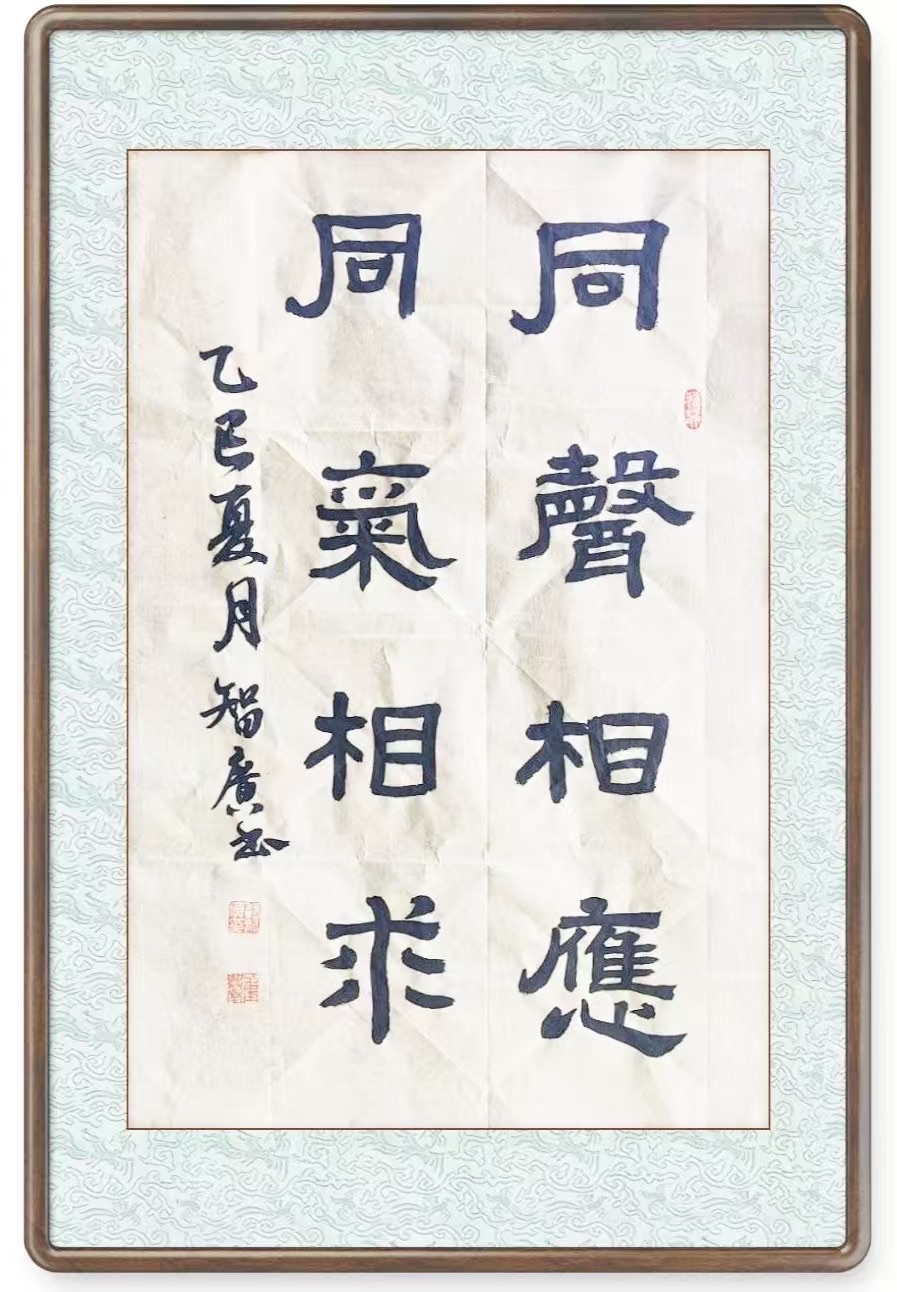 同聲相應
同氣相求
乙巳夏月智廣书